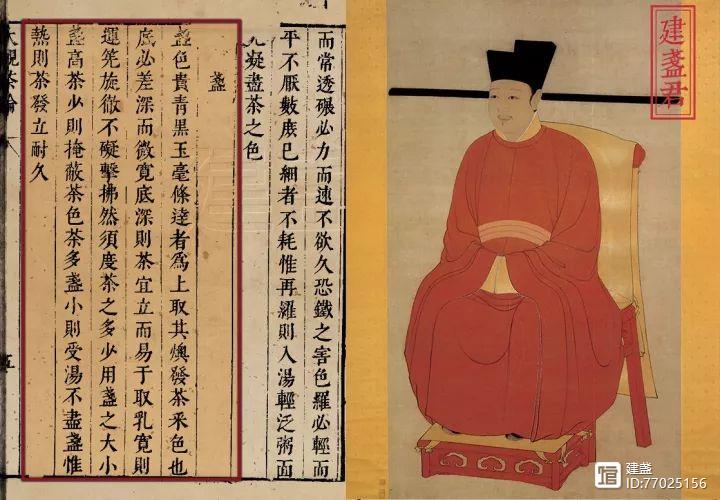 而常透碾必力而速不欲久恐鐵之害色羅必輕而
平不厭數庶已細者不耗惟再羅則入湯輕泛粥面
光凝盡茶之色
盞
盞色貴青黑玉毫條逹者爲上取其燠發茶采色也
底必差深而微寛底深則茶宜立而易于取乳寛則
運筅旋徹不礙擊拂然須度茶之多少用盞之大小
盞高茶少則掩蔽茶色茶多盞小則受湯不盡盞惟
熱則茶發立耐久
大觀茶論
五
建盞君
建盏
ID:77025156